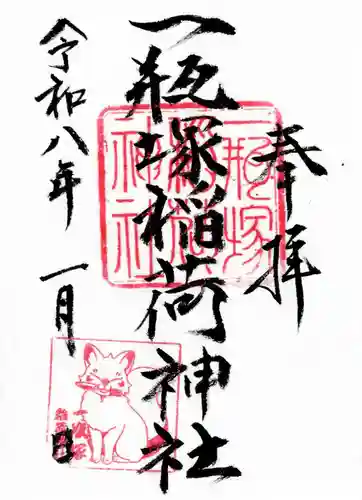 奉拝
一瓶塚稲荷神社
令和八年 一月 日
一瓶塚
稲荷神社